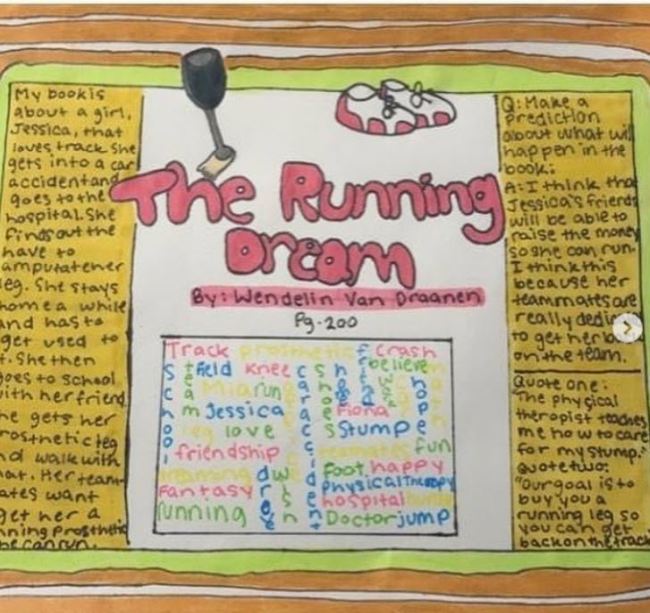 My book is
about a girl,
Jessica, that
loves track. She
gets into a car
accident and
goes to the
hospital. She
finds out the
have to
amputate her
leg. She stays
home a while
and has to
get used to
it. She then
goes to school
with her friend
he gets her
prosthetic leg
nd walk with
hat. Her team-
ates want
get her a
nning prosthetic
he can run.
The Running
Dream
By: Wendelin Van Draanen
Pg-200
Track prosthetic Crash
field knee believe
Mia run
Jessica Fiona
leg love Stump
friendship teammates fun
foot happy
physical therapy
Fantasy hospital
running Doctor jump
school
car accident
shoes
Q: Make a
prediction
about what will
happen in the
book:
A: I think that
Jessica's friends
will be able to
raise the money
so she can run.
I think this
because her
teammates are
really dedic
to get her b
on the team.
Quote one:
"The physical
therapist teaches
me how to care
for my stump."
Quote two:
"Our goal is to
buy you a
running leg so
you can get
back on the track